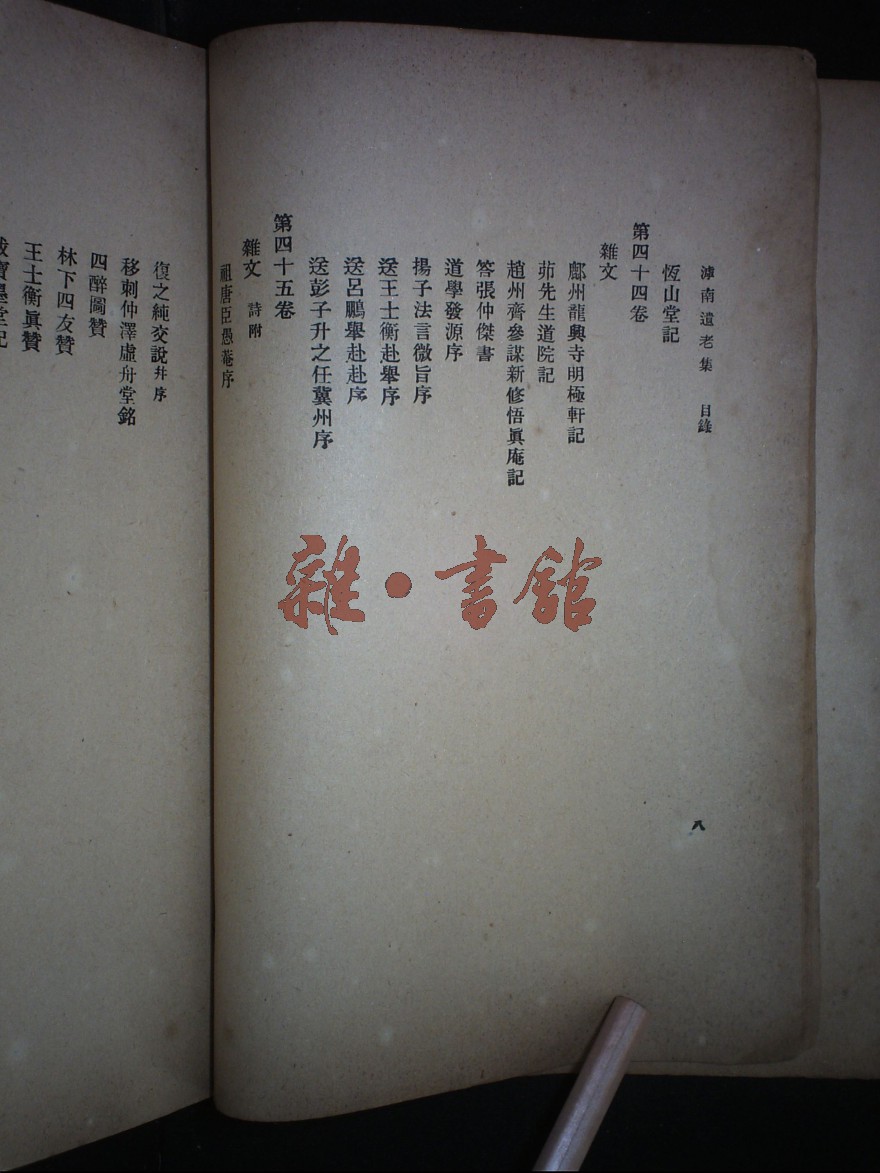 滹南遺老集 目錄
恆山堂記
第四十四卷
雜文
鄜州龍興寺明極軒記
茆先生道院記
趙州齊參謀新修悟眞庵記
答張仲傑書
道學發源序
揚子法言微旨序
送王士衡赴舉序
送呂鵬舉赴赴序
送彭子升之任冀州序
第四十五卷
雜文 詩附
祖唐臣愚菴序
八
復之純交說幷序
移刺仲澤虛舟堂銘
四醉圖贊
林下四友贊
王士衡眞贊
寶墨堂記
雜·書館